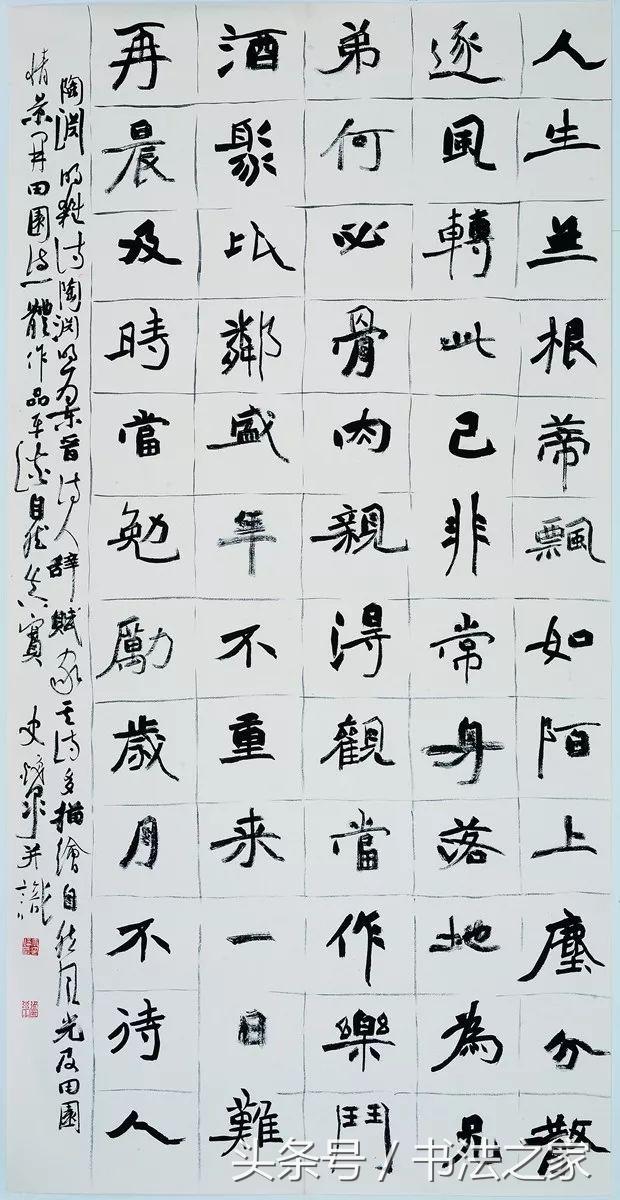 人生無根蒂飄如陌上塵分散
逐風轉此已非常身落地為兄
弟何必骨肉親得觀當作樂鬥
酒聚比鄰盛年不重来一日難
再晨及時當勉勵歲月不待人
陶渊明雜诗陶渊明为东晋诗人辞賦家其诗多描繪自然风光及田園
情景开田園诗一體作品平淡自然真實 史并識
头条号 / 书法之家